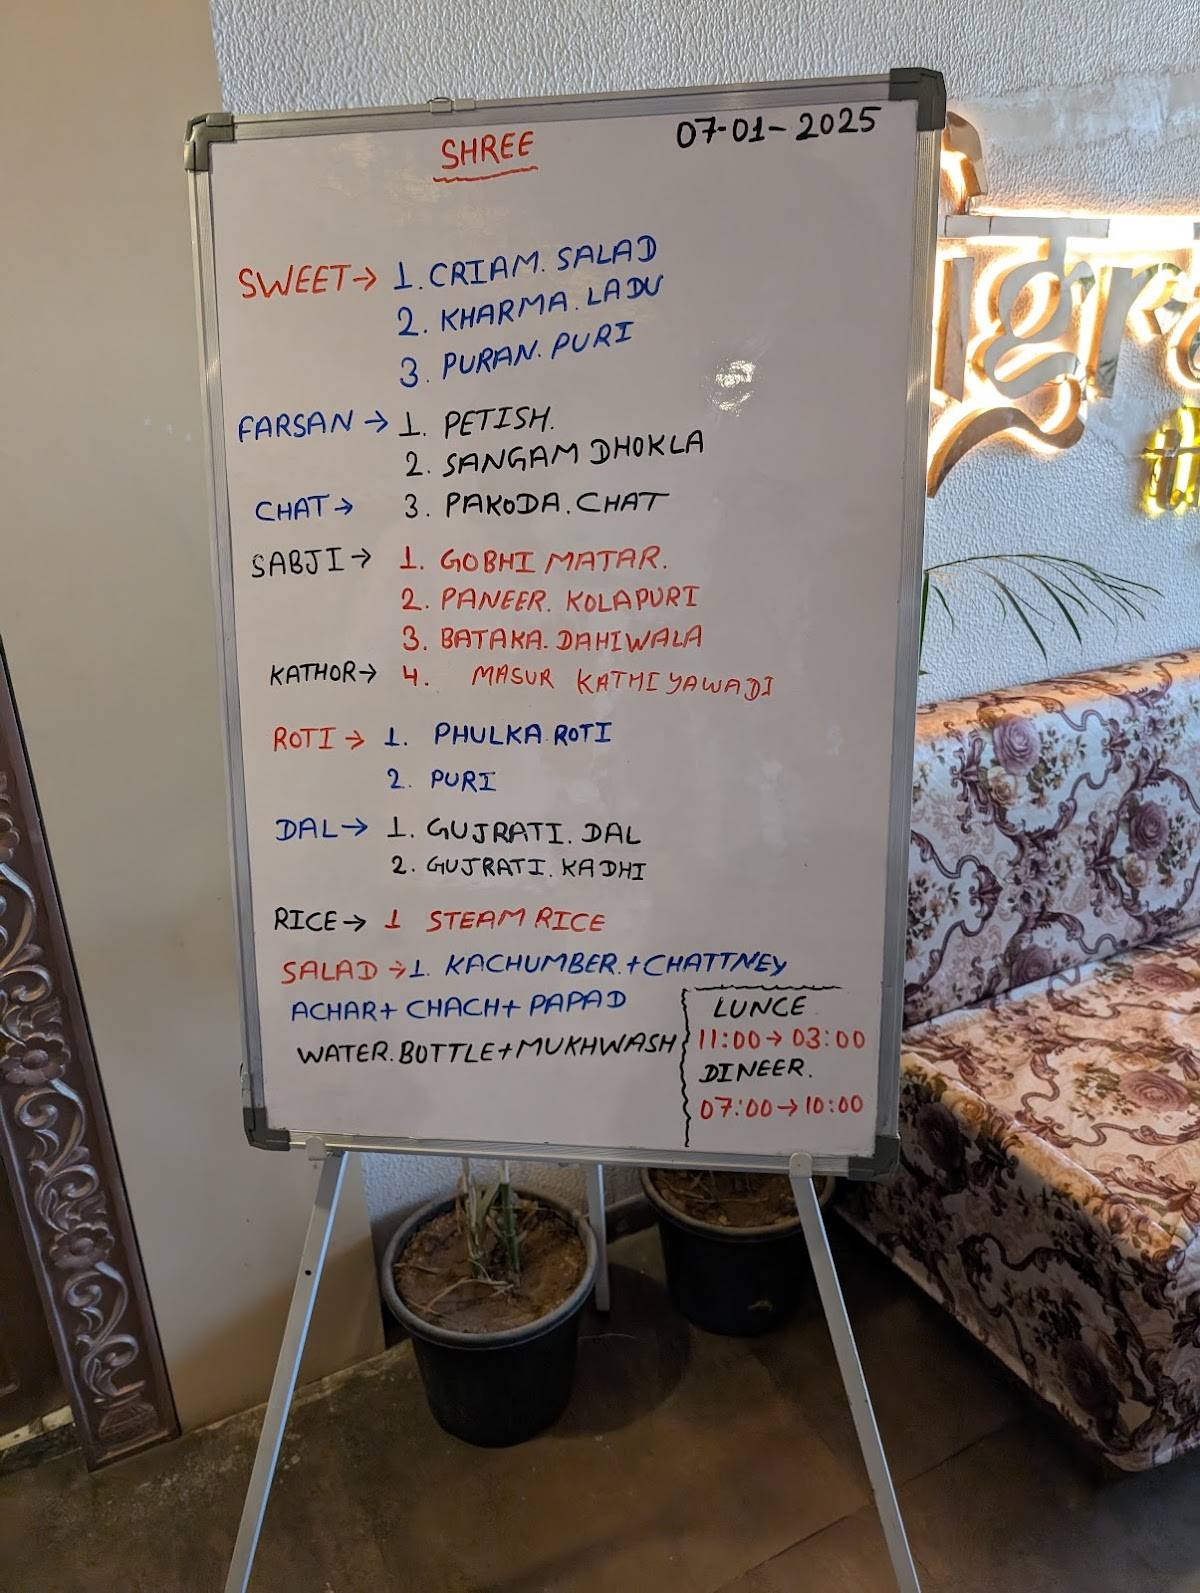 SHREE
07-01-2025
SWEET→ 1. CRIAM. SALAD
2. KHARMA. LADU
3. PURAN. PURI
FARSAN → 1. PETISH.
2. SANGAM DHOKLA
CHAT → 3. PAKODA. CHAT
SABJI → 1. GOBHI MATAR.
2. PANEER. KOLAPURI
3. BATAKA. DAHIWALA
KATHOR→ 4. MASUR KATHIYAWADI
ROTI → 1. PHULKA ROTI
2. PURI
DAL→ 1. GUJRATI. DAL
2. GUJRATI. KADHI
RICE→ 1 STEAM RICE
SALAD →1. KACHUMBER.+CHATTNEY
ACHAR+ CHACH+ PAPAD
WATER.BOTTLE+MUKHWASH
LUNCE
11:00→03:00
DINEER.
07:00→10:00